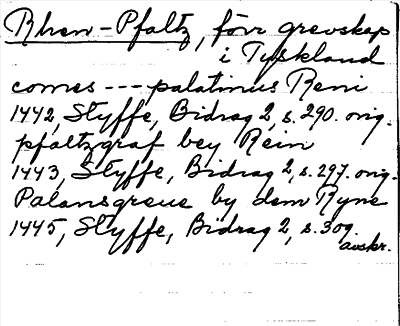 Rhen-Pfaltz, förr grevskap
i Tyskland
comes --- palatinus Reni
1442, Styffe, Bidrag 2, s. 290. orig.
pfaltzgraf bey Rein
1443, Styffe, Bidrag 2, s. 297. orig.
Palansgreue by dem Ryne
1445, Styffe, Bidrag 2, s. 309.
avskr.